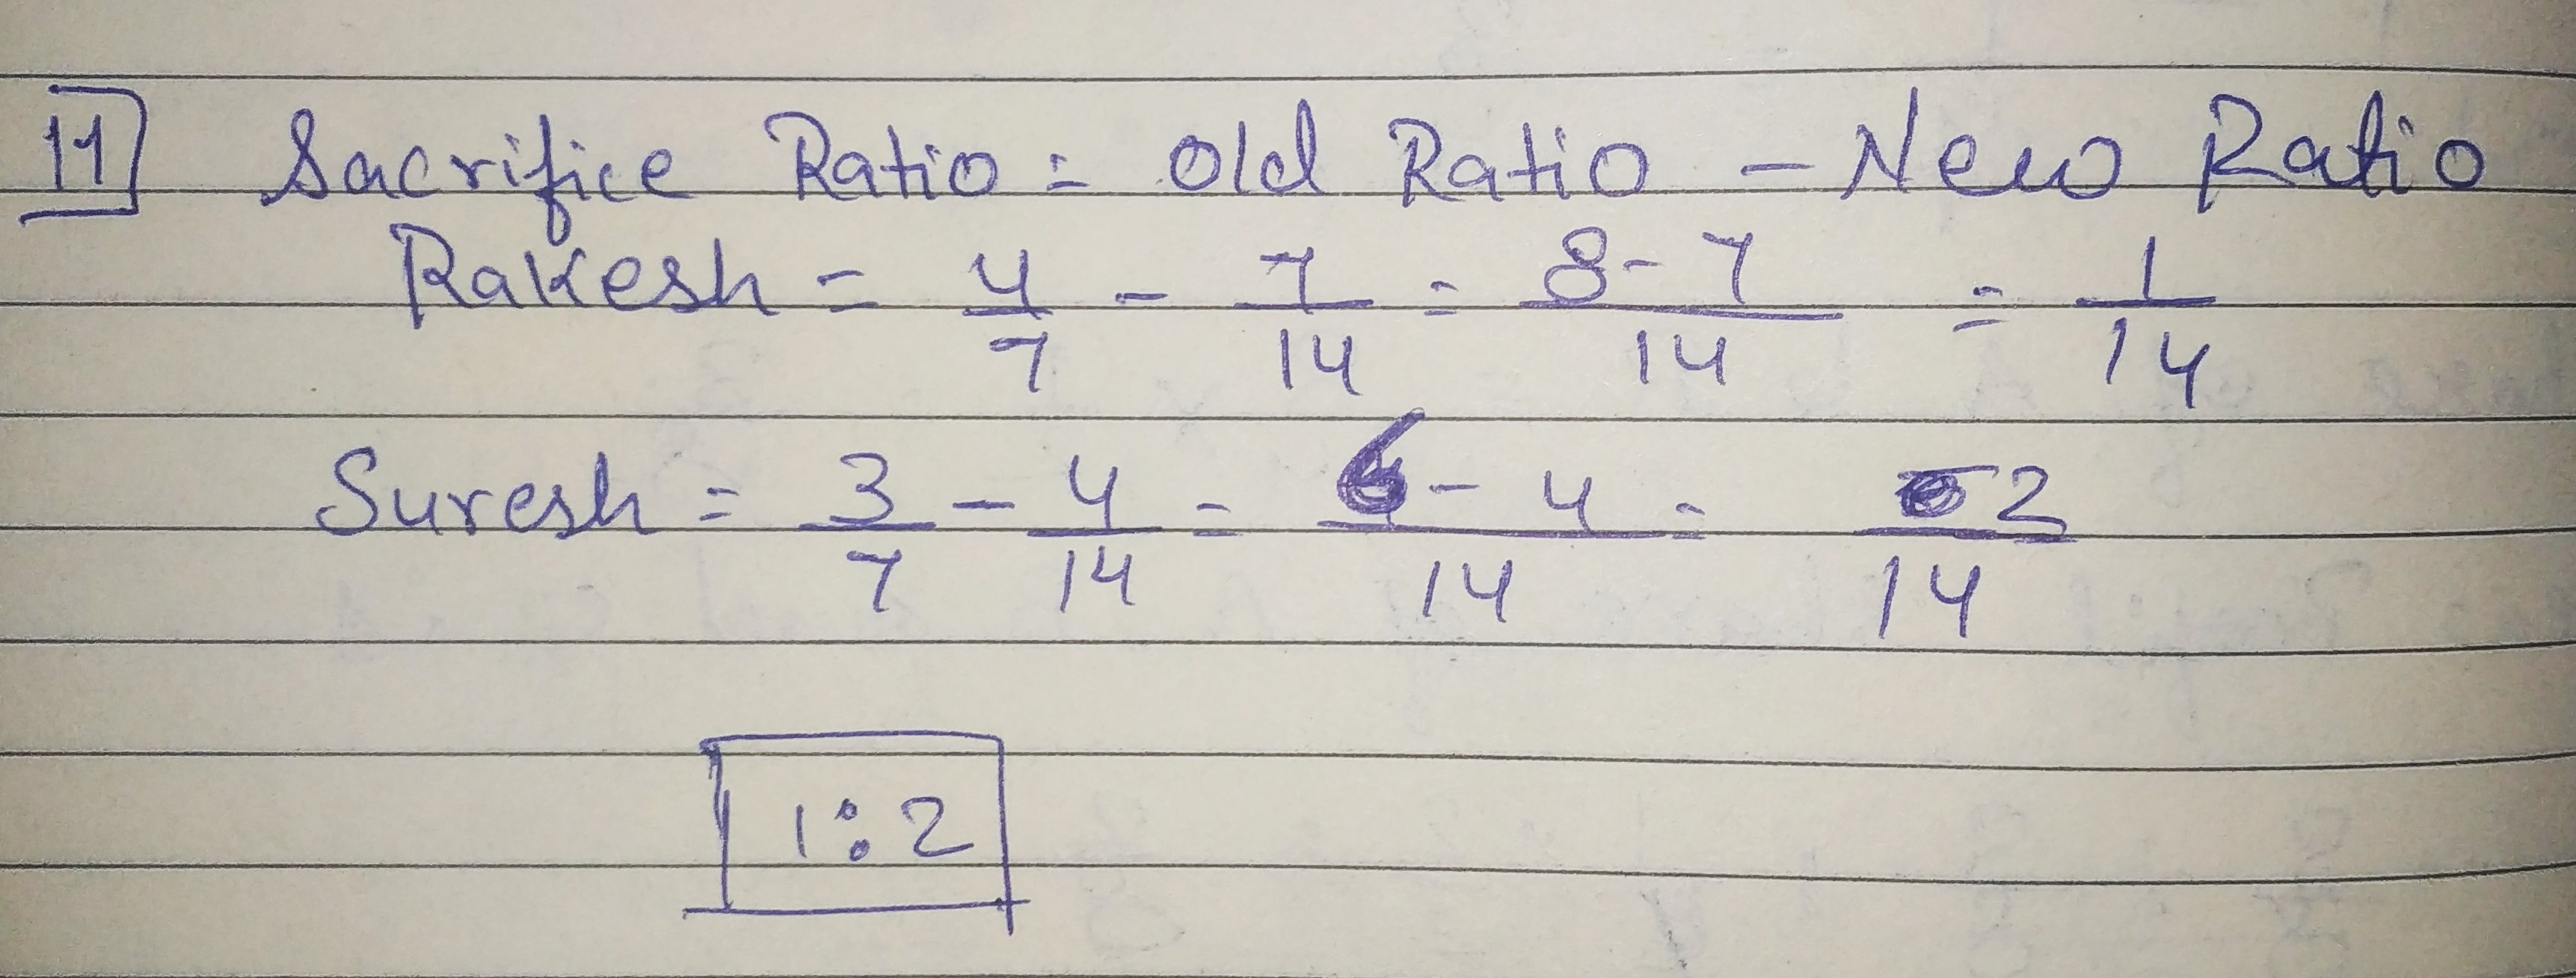 11] Sacrifice Ratio = Old Ratio - New Ratio
Rakesh = 4/7 - 7/14 = 8-7/14 = 1/14
Suresh = 3/7 - 4/14 = 6-4/14 = 2/14
1:2